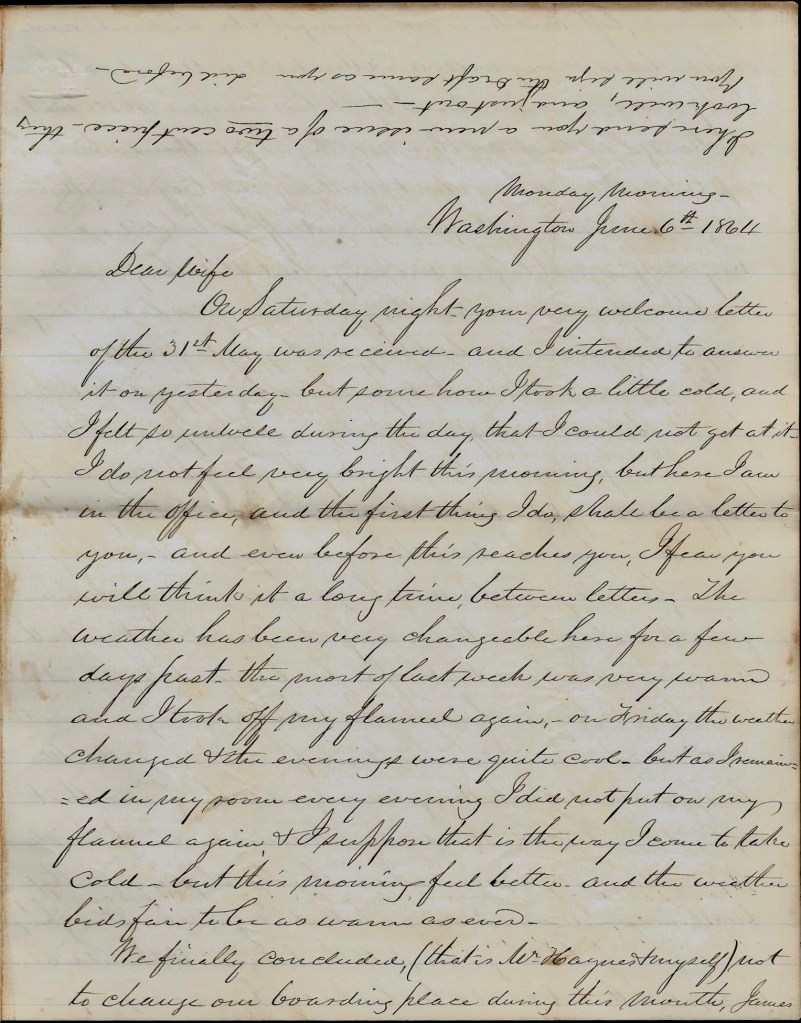 I here send you a new issue of a two cent piece - they
look well, and just out -
You will sign the Draft same as you did before -
Monday Morning -
Washington June 6th 1864
Dear Wife
On Saturday night - your very welcome letter
of the 31st May was received - and I intended to answer
it on yesterday - but some how I took a little cold, and
I felt so unwell during the day, that I could not get at it -
I do not feel very bright this morning, but here I am
in the office, and the first thing I do, shall be a letter to
you, - and even before this reaches you, I fear you
will think it a long time, between letters - The
weather has been very changeable here for a few
days past - the most of last week was very warm
and I took off my flannel again, - on Friday the weather
changed & the evenings were quite cool - but as I remain=
=ed in my room every evening I did not put on my
flannel again, & I suppose that is the way I come to take
cold - but this morning feel better - and the weather
bids fair to be as warm as ever -
We finally concluded, (that is Mr. Haynes & myself) not
to change our boarding place during this month, James